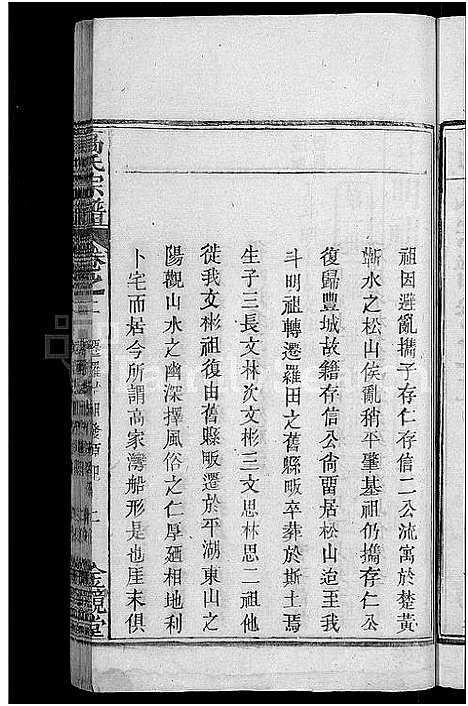 祖因避亂攜子存仁存信二公流寓於楚黃
蘄水之松山侯亂稍平肇基祖仍攜存仁公
復歸豐城故籍存信公尙畱居松山迨至我
斗明祖轉遷羅田之舊縣畈卒葬於斯土焉
生子三長文林次文彬三文思林思二祖他
徙我文彬祖復由舊縣畈遷於平湖東山之
陽觀山水之幽深擇風俗之仁厚廼相地利
卜宅而居今所謂高家灣船形是也厓末俱
高氏宗譜
卷之二
二
金鏡堂